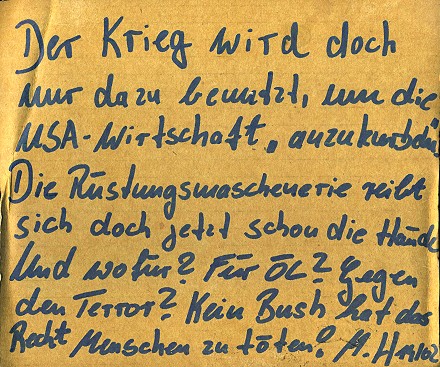 Der Krieg wird doch
nur dazu benutzt, um die
USA-Wirtschaft „anzukurbeln
Die Rüstungsmaschenerie reibt
sich doch jetzt schon die Hände
Und wofür? Für ÖL? Gegen
den Terror? Kein Bush hat das
Recht Menschen zu töten! M. H